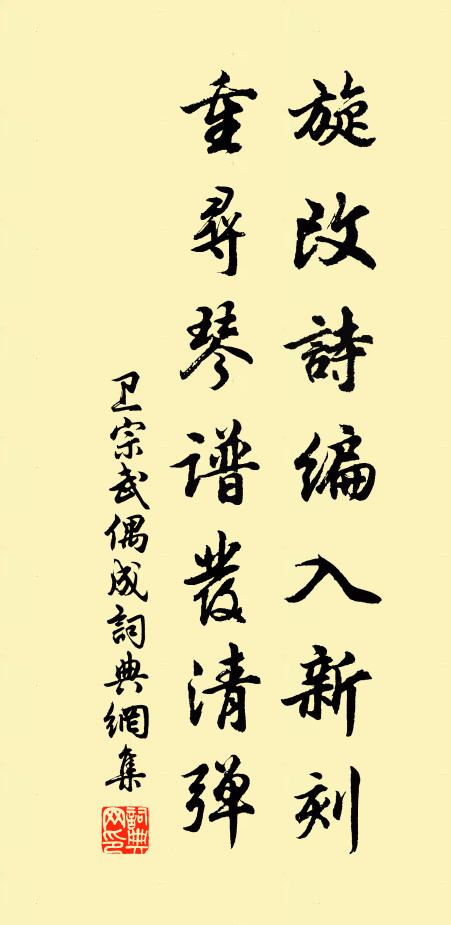 旋改詩编入新刻
重尋琴谱發清弹
卫宗武偶成詞典網集
詞典網印